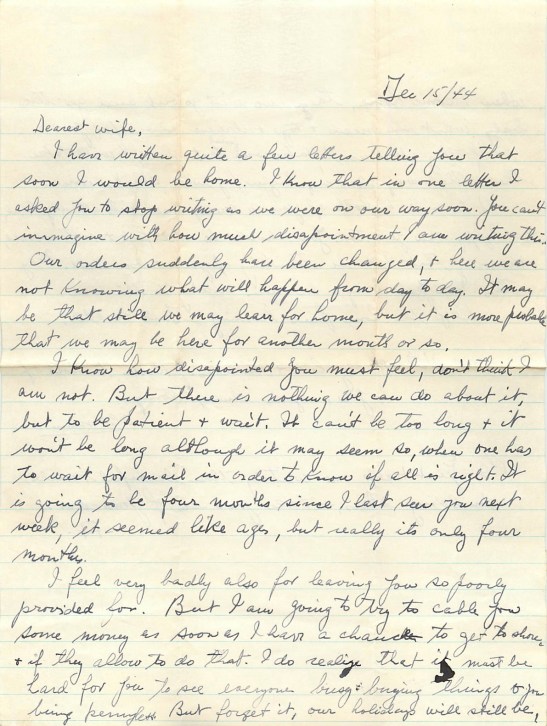 Dec 15/44
Dearest wife,
I have written quite a few letters telling you that
soon I would be home. I know that in one letter I
asked you to stop writing as we were on our way soon. You can't
immagine with how much disapointment I am writing this.
Our orders suddenly have been changed, + here we are
not knowing what will happen from day to day. It may
be that still we may leave for home, but it is more probable
that we may be here for another month or so.
I know how disapointed you must feel, don't think I
am not. But there is nothing we can do about it,
but to be patient + wait. It can't be too long + it
won't be long although it may seem so, when one has
to wait for mail in order to know if all is right. It
is going to be four months since I last seen you next
week, it seemed like ages, but really its only four
months.
I feel very badly also for leaving you so poorly
provided for. But I am going to try to cable you
some money as soon as I have a chance to get to shore,
+ if they allow to do that. I do realize that it must be
hard for you to see everyone busy buying things & you
being pennyless But forget it, our holidays will still be,